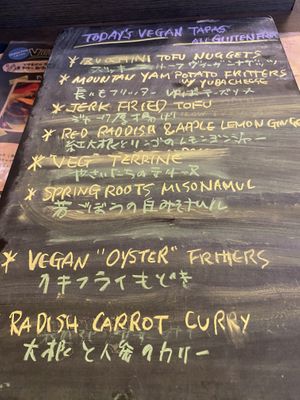 TODAY'S VEGAN TAPAS
ALL GLUTTEN FREE
* ZUCCHINI TOFU NUGGETS
* MOUNTAN YAM POTATO FRITTERS
W/ YUBA CHEESE
* JERK FRIED TOFU
ジャーク厚揚げ
* RED RADDISH & APPLE LEMON GINGE
紅大根とリンゴのレモンジンジャー
* "VEG" TERRINE
やさいたちのテリーヌ
* SPRING ROOTS MISONAMUL
若ごぼうの白みそナムル
* VEGAN "OYSTER" FRITTERS
カキフライもどき
RADISH CARROT CURRY
大根と人参のカリー